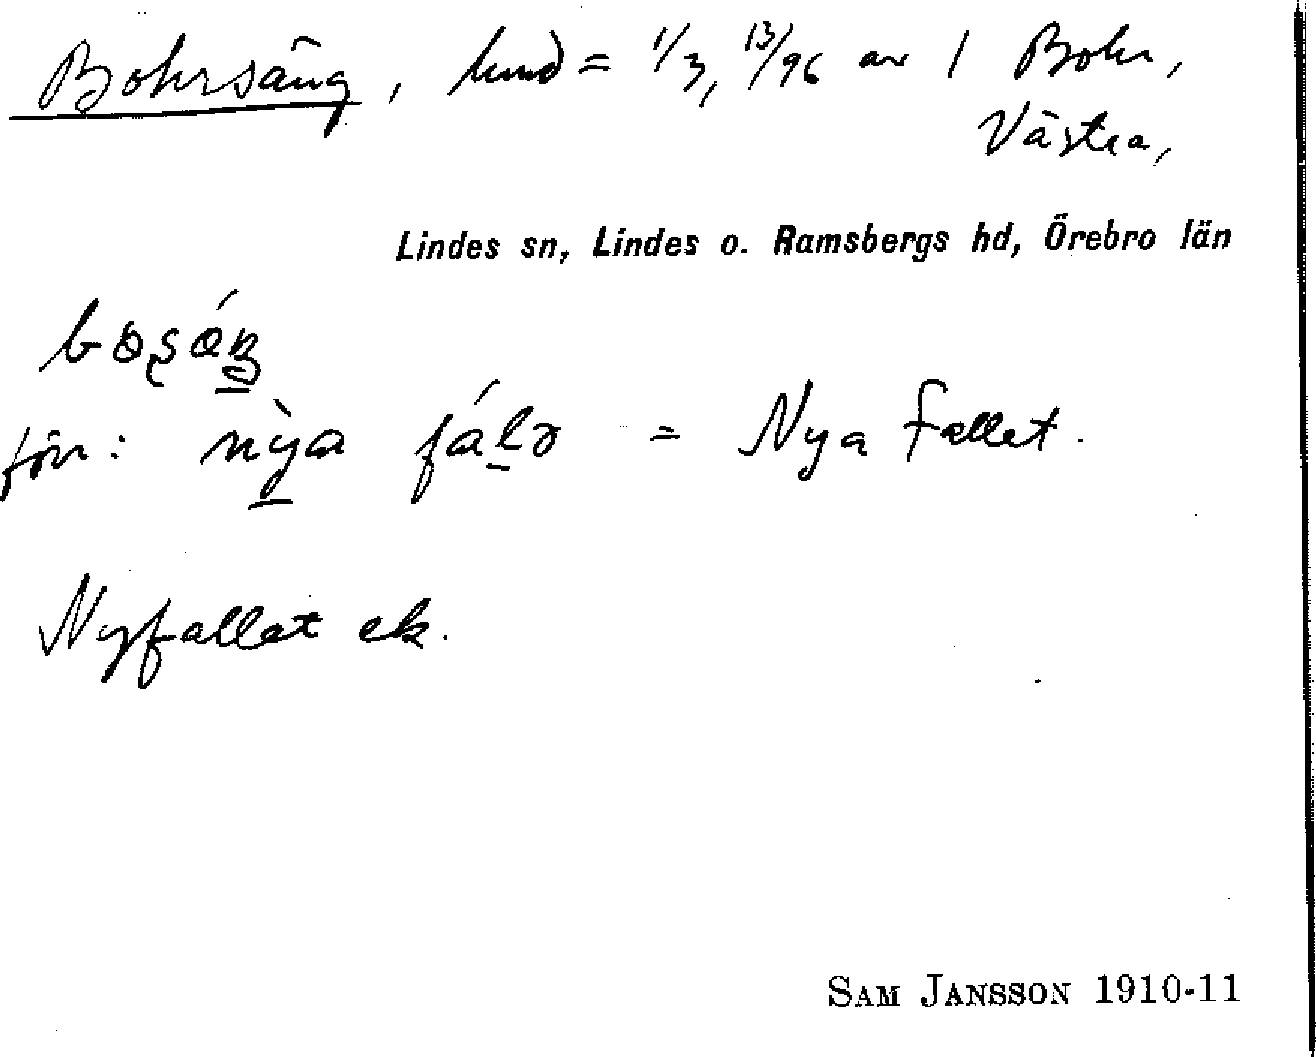 Bohrsäng, hmd = 1/3, 13/96 av 1 Bohr,
Västra,
Lindes sn, Lindes o. Ramsbergs hd, Örebro län
för: nỳa fálə = Nya fallet.
Nyfallet ek.
SAM JANSSON 1910-11